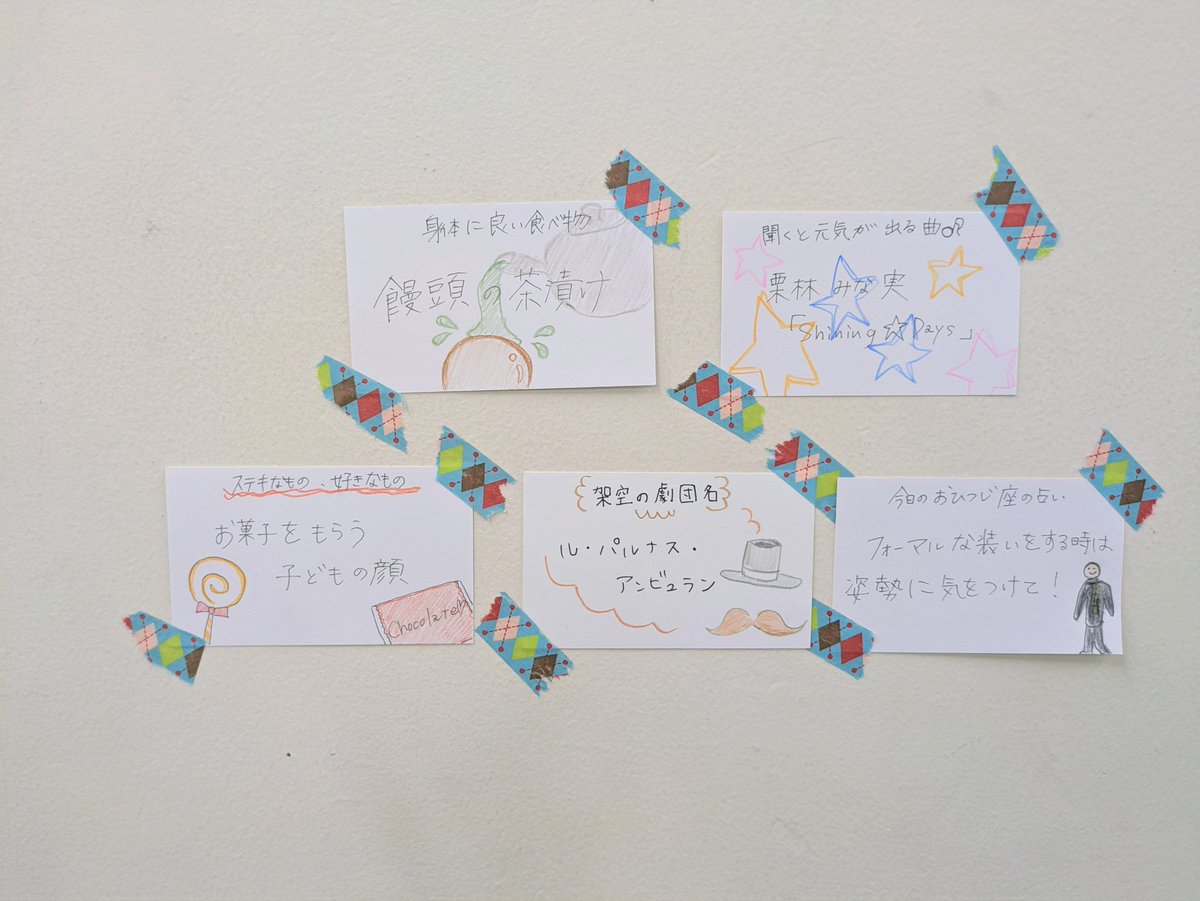 身体に良い食べ物
饅頭の茶漬け
聞くと元気が出る曲
栗林みな実
「Shining☆Days」
ステキなもの、好きなもの
お菓子をもらう
子どもの顔
Chocolate
架空の劇団名
ル・パルナス・
アンビュラン
今日のおひつじ座の占い
フォーマルな装いをする時は
姿勢に気をつけて!